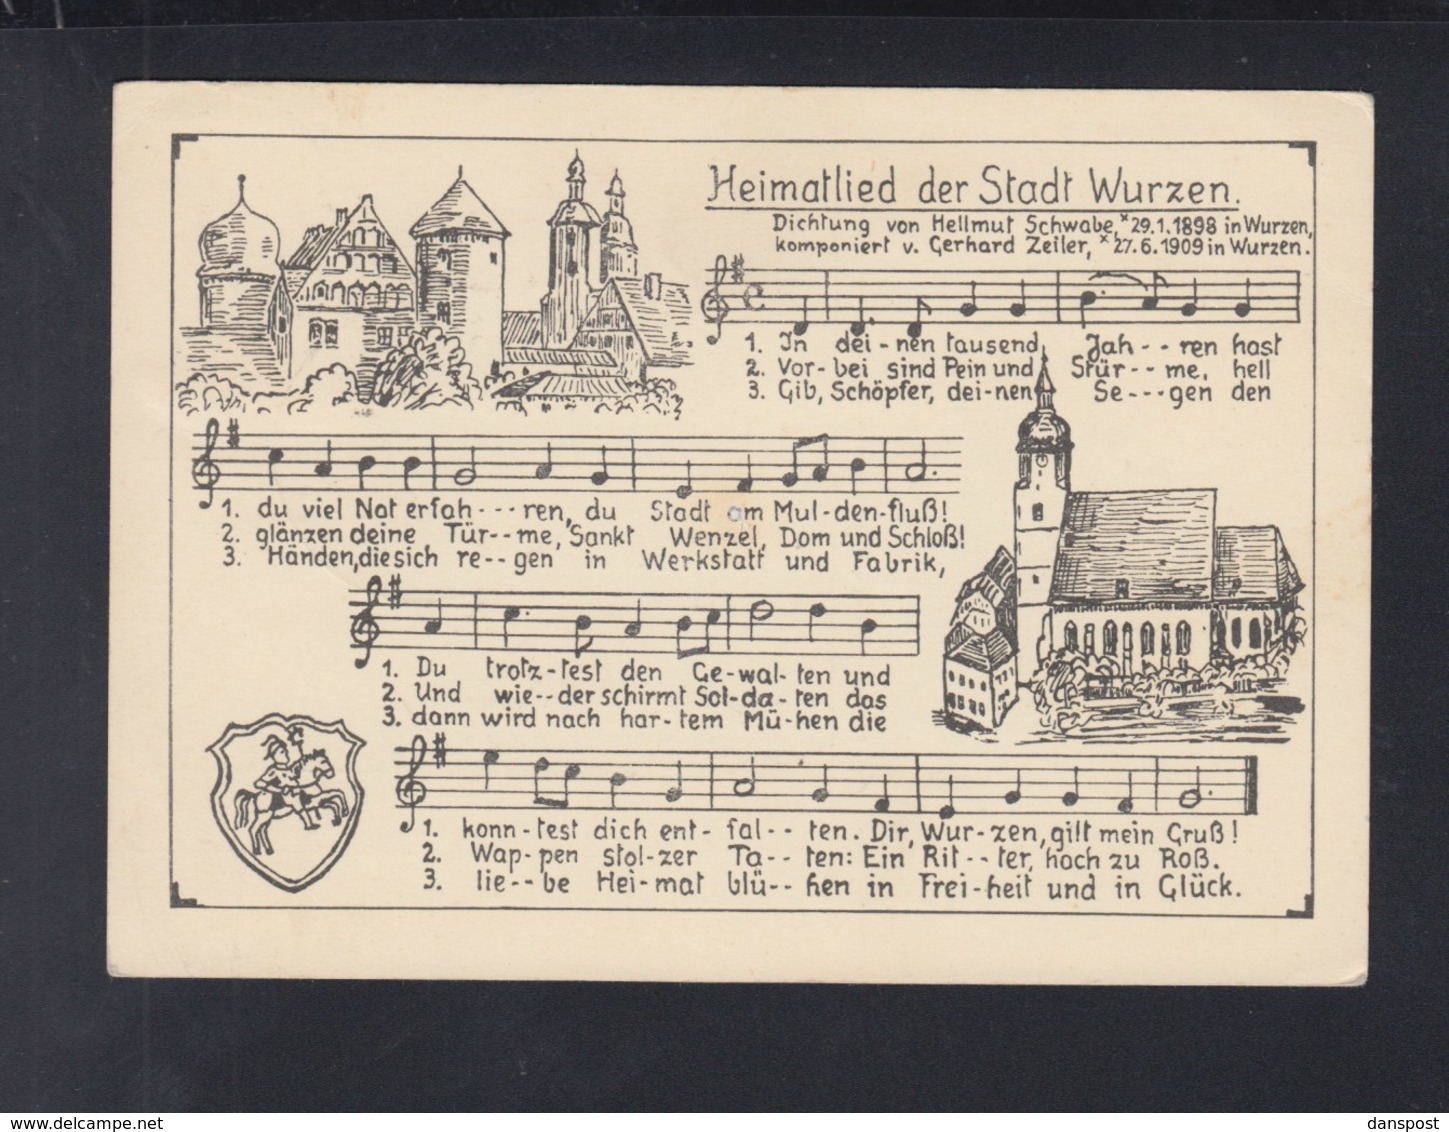 Heimatlied der Stadt Wurzen.
Dichtung von Hellmut Schwabe, * 29.1.1898 in Wurzen,
komponiert v. Gerhard Zeiler, * 27.6.1909 in Wurzen.
1. In dei-nen tausend Jah--ren hast
2. Vor-bei sind Pein und Stür--me, hell
3. Gib, Schöpfer, dei-nen Se---gen den
1. du viel Not erfah---ren, du Stadt am Mul-den-fluß!
2. glänzen deine Tür--me, Sankt Wenzel, Dom und Schloß!
3. Händen, die sich re--gen in Werkstatt und Fabrik,
1. Du trotz-test den Ge-wal-ten und
2. Und wie--der schirmt Sol-da-ten das
3. dann wird nach har-tem Mü-hen die
1. konn-test dich ent-fal--ten. Dir, Wur-zen, gilt mein Gruß!
2. Wap-pen stol-zer Ta--ten: Ein Rit--ter, hoch zu Roß.
3. lie--be Hei-mat blü--hen in Frei-heit und in Glück.
www.delcampe.net
danspost